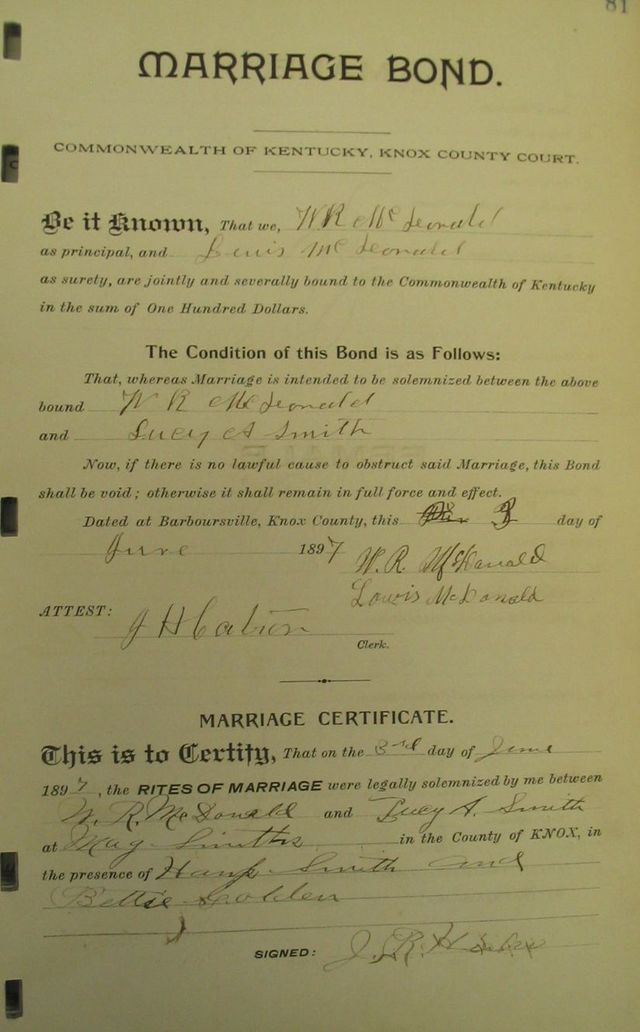 81
MARRIAGE BOND.
COMMONWEALTH OF KENTUCKY, KNOX COUNTY COURT.
Be it Known, That we, W R McDonald
as principal, and Lewis McDonald
as surety, are jointly and severally bound to the Commonwealth of Kentucky
in the sum of One Hundred Dollars.
The Condition of this Bond is as Follows:
That, whereas Marriage is intended to be solemnized between the above
bound W R McDonald
and Lucy A Smith
Now, if there is no lawful cause to obstruct said Marriage, this Bond
shall be void; otherwise it shall remain in full force and effect.
Dated at Barboursville, Knox County, this 3 day of
June 1897
W. R. McDonald
Lowis McDonald
ATTEST: J H Catron
Clerk.
MARRIAGE CERTIFICATE.
This is to Certify, That on the 3rd day of June
1897, the RITES OF MARRIAGE were legally solemnized by me between
W. R. McDonald and Lucy A. Smith
at May Smiths in the County of KNOX, in
the presence of Smith and
Bettie
SIGNED: J. R.